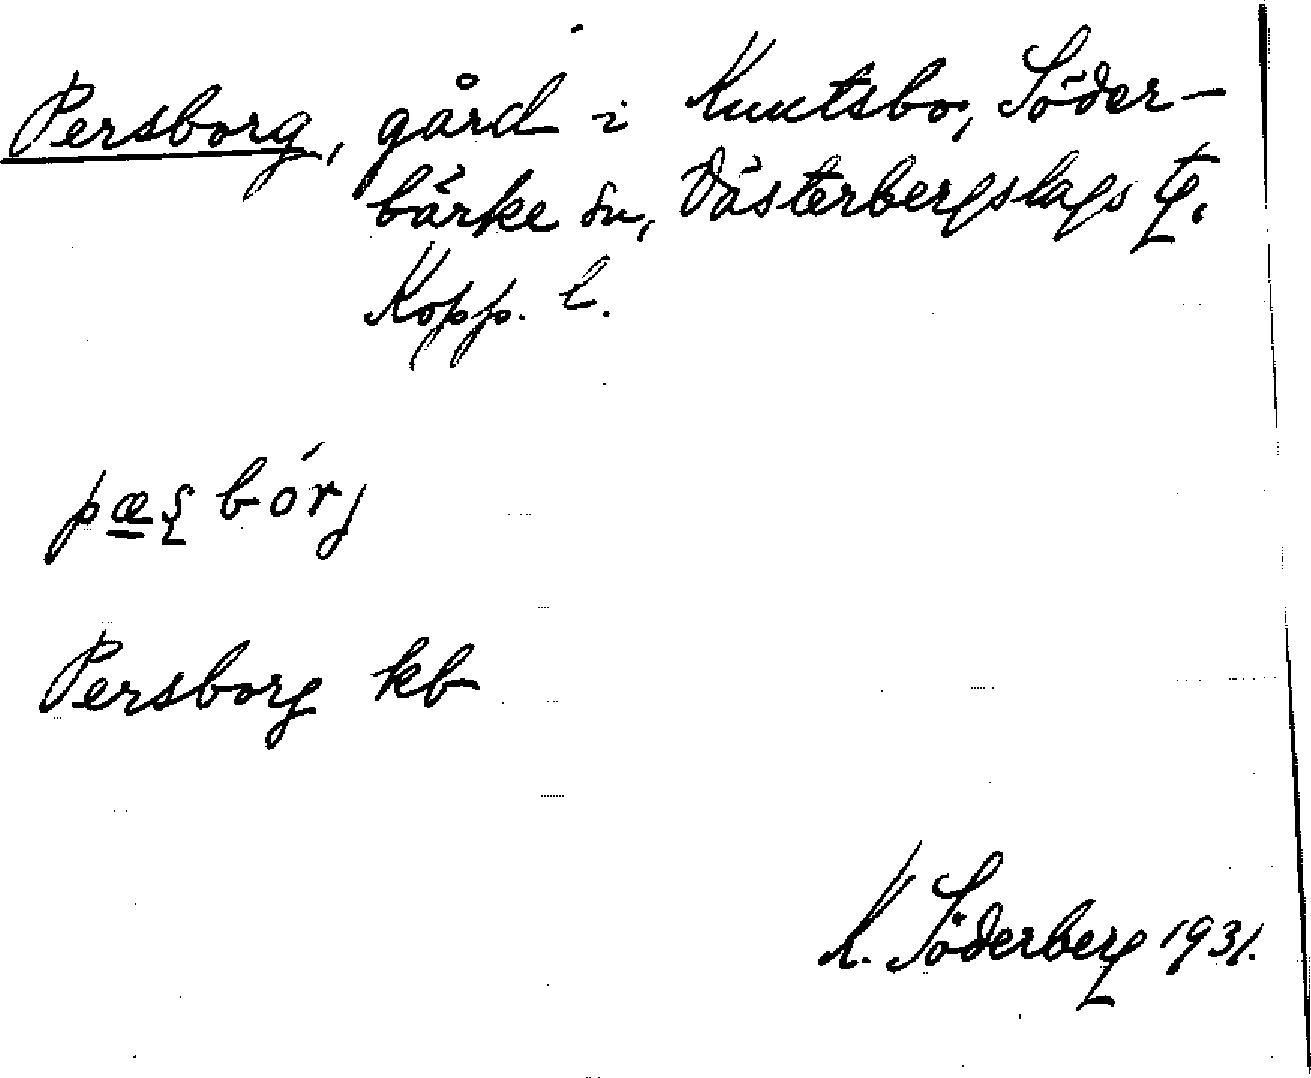 Persborg, gård i Knutsbo, Söder-
bärke sn, Västerbergslags tg.
Kopp. l.
pæʂbórj
Persborg kb
K. Söderberg 1931.